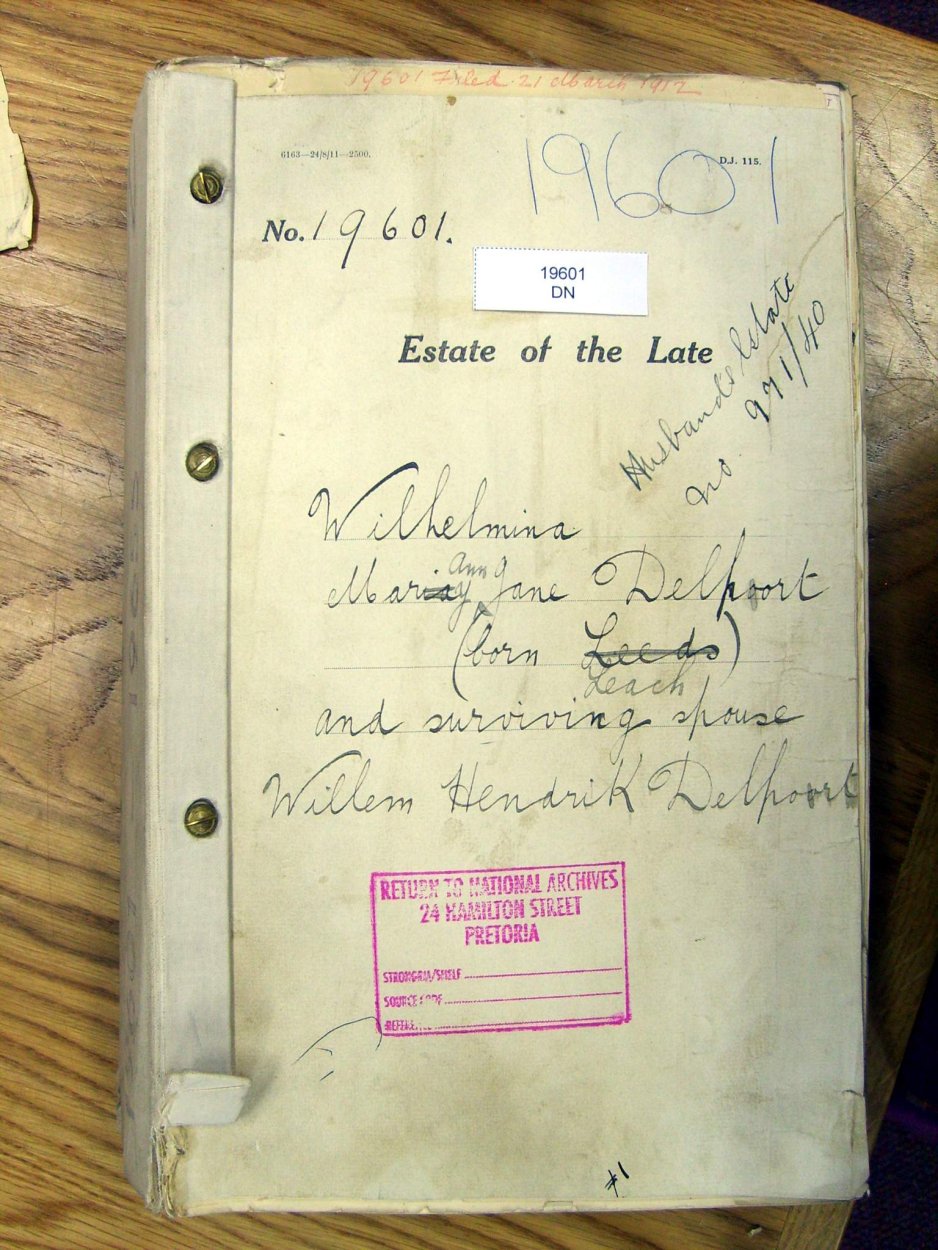 19601 Filed 21 March 1912
6163—24/8/11—2500.
D.J. 115.
19601
No. 19601.
19601
DN
Estate of the Late
Husband's Estate
no. 971/40
Wilhelmina
Mary Ann Jane Delpoort
(born Leeds)
Leach
and surviving spouse
Willem Hendrik Delpoort
RETURN TO NATIONAL ARCHIVES
24 HAMILTON STREET
PRETORIA
STRONGRM/SHELF
SOURCE CODE
#1